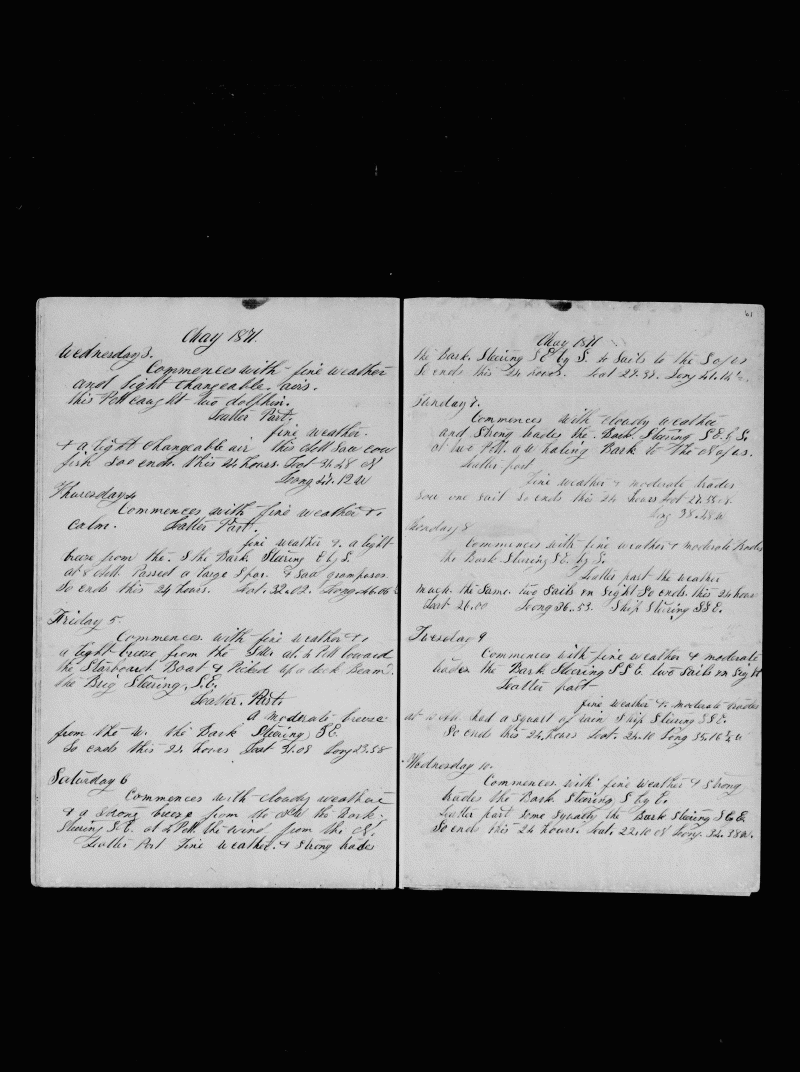 May 1871.
Wednesday 3.
Commences with fine weather
and light changeable airs.
this PM caught two dolphin.
Latter Part.
fine weather.
& a light changeable air this AM saw cow
fish So ends this 24 hours. Lat 31.28 N
Long 47.12 W
Thursday 4
Commences with fine weather &
calm. Latter Part.
fine weather & a light
breeze from the S the Bark Steering E by S.
at 8 AM. Passed a large Spar. & Saw grampuses
So ends this 24 hours. Lat. 32.02. Long 46.06
Friday 5
Commences with fine weather &
a light breeze from the SW. at 4 PM lowered
the Starboard Boat & Picked up a deck Beam.
the Brig Steering S.E.
Latter Part.
a moderate breeze
from the W. the Bark Steering SE
So ends this 24 hours Lat 31.08 Long 43.58
Saturday 6
Commences with cloudy weather
& a Strong breeze from the SW the Bark
Steering S.E. at 2 PM the wind from the N.
Latter Part Fine weather & Strong trades
61
May 1871
the Bark Steering SE by S. 4 Sails to the
So ends this 24 hours. Lat 29.32. Long 41.14
Sunday 7.
Commences with Cloudy weather
and Strong trades the Bark Steering SE by S.
at two PM. a whaling Bark to the
Latter part
fine weather & moderate trades
Saw one sail So ends this 24 hours Lat 27.55 N.
Long 38.48 W
Monday 8
Commences with fine weather & moderate trades
the Bark Steering SE. by S.
Latter part the weather
much the Same. two Sails in Sight So ends this 24 hours
Lat 26.00 Long 36.53. Ship Steering SSE.
Tuesday 9
Commences with fine weather & moderate
trades the Bark Steering SSE. two Sails in Sight
Latter part
fine weather & moderate trades
at AM. had a squall of rain Ship Steering SSE.
So ends this 24 hours Lat. 24.10 Long 35.16 W
Wednesday 10.
Commences with fine weather & Strong
trades the Bark Steering S by E.
Latter part Some Squally the Bark Steering SSE.
So ends this 24 hours. Lat. 22.10 N Long. 34.38 W.